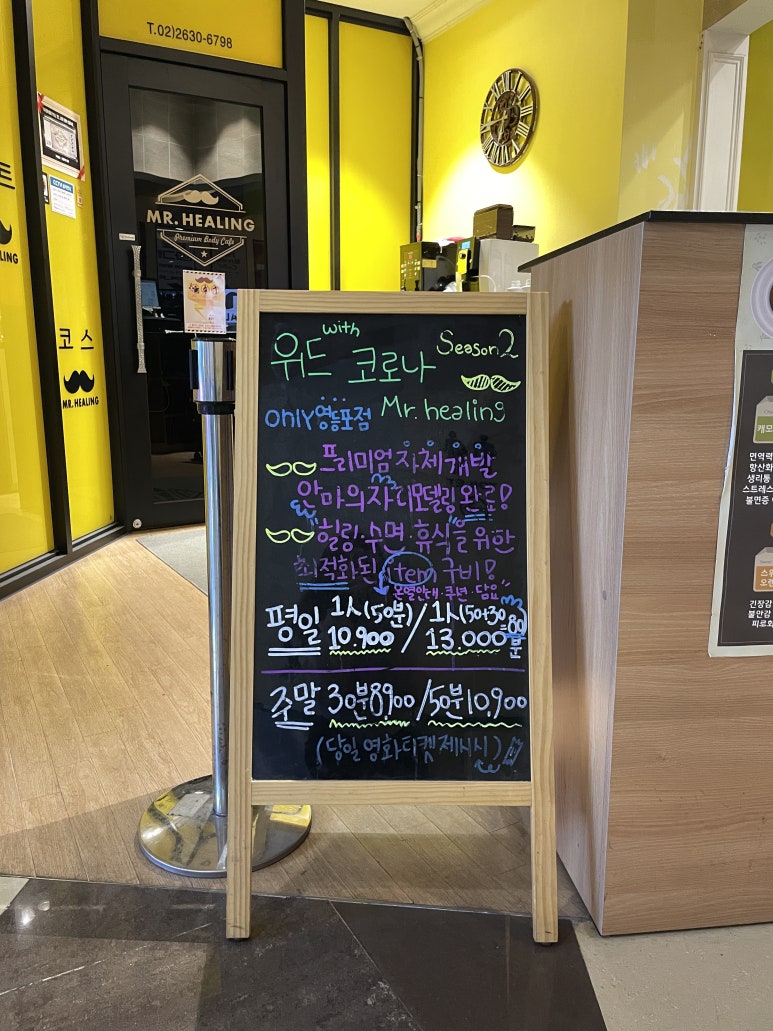 T.02)2630-6798
MR. HEALING
Premium Body Cafe
트
코스
MR. HEALING
위드 with 코로나 Season2
only영등포점 Mr. healing
프리미엄 자체개발
안마의자 리모델링 완료!
힐링·수면·휴식을 위한
최적화된 item 구비!
온열안대·쿠션·담요
평일 1시(50분) / 1시(50+30=80분
10.900 / 13.000
주말 30분8,900 / 50분10,900
(당일 영화티켓제시시)
캐모
면역력
항산화
생리통
스트레스
불면증
스위
오렌
긴장감
불안감
피로회